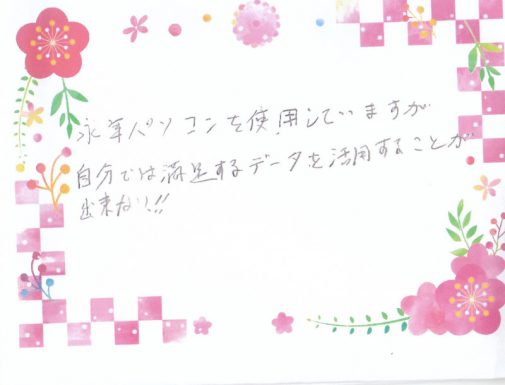 永年パソコンを使用していますが
自分では満足するデータを活用することが
出来ない!!